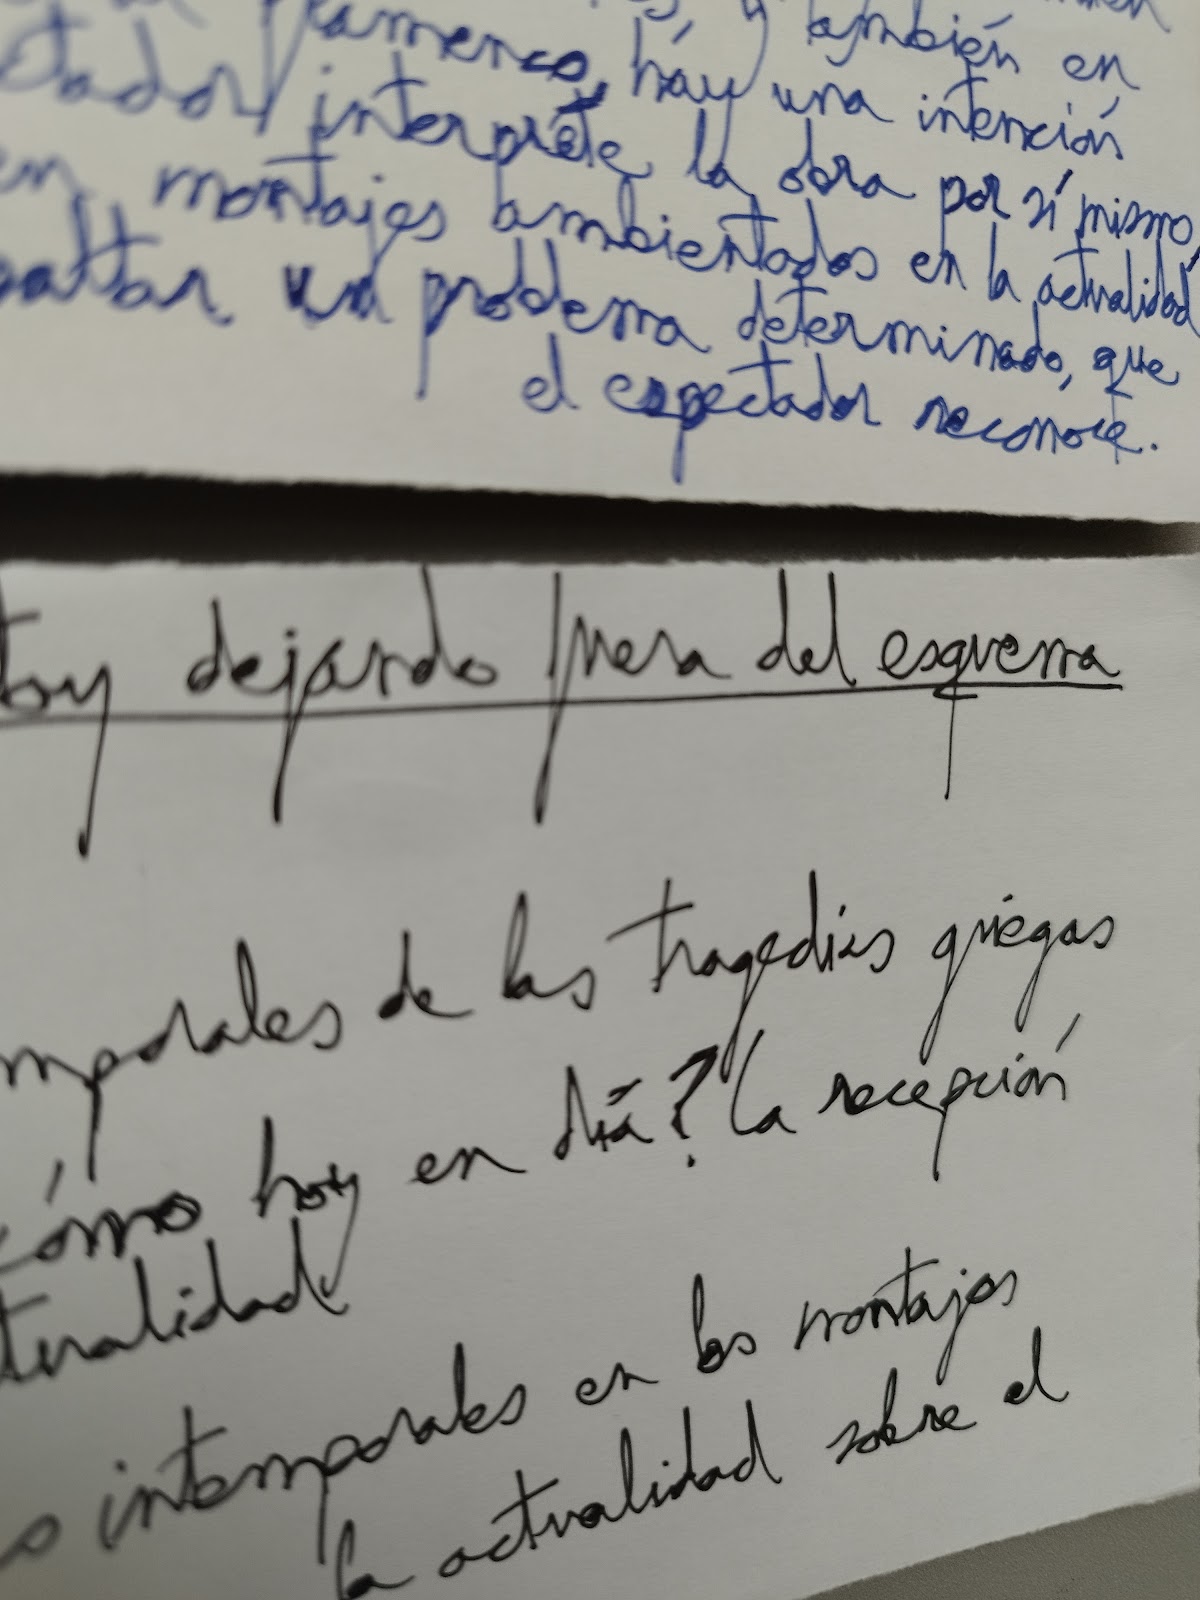 también en
flamenco, hay una intención
interprete la obra por sí mismo,
en montajes ambientados en la actualidad
un problema determinado, que
el espectador reconoce.
toy dejando fuera del esquema
mporales de las tragedias griegas
cómo hoy en día? La recepción
tualidad
o intemporales en los montajes
la actualidad sobre el